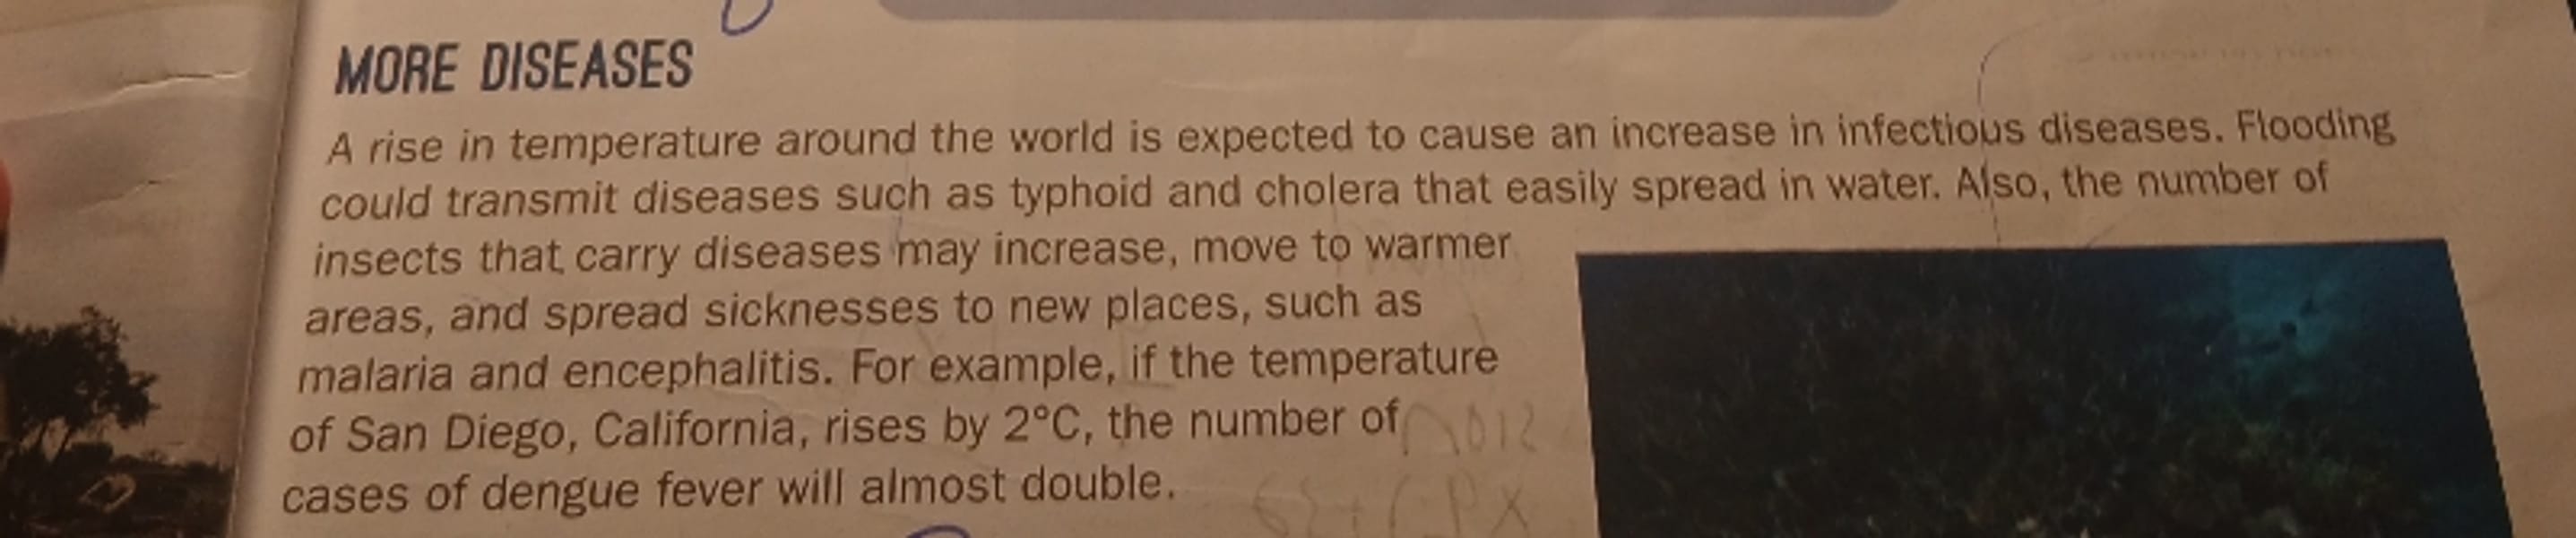 MORE DISEASES
A rise in temperature around the world is expected to cause an increase in infectious diseases. Flooding
could transmit diseases such as typhoid and cholera that easily spread in water. Also, the number of
insects that carry diseases may increase, move to warmer
areas, and spread sicknesses to new places, such as
malaria and encephalitis. For example, if the temperature
of San Diego, California, rises by 2°C, the number of
cases of dengue fever will almost double.